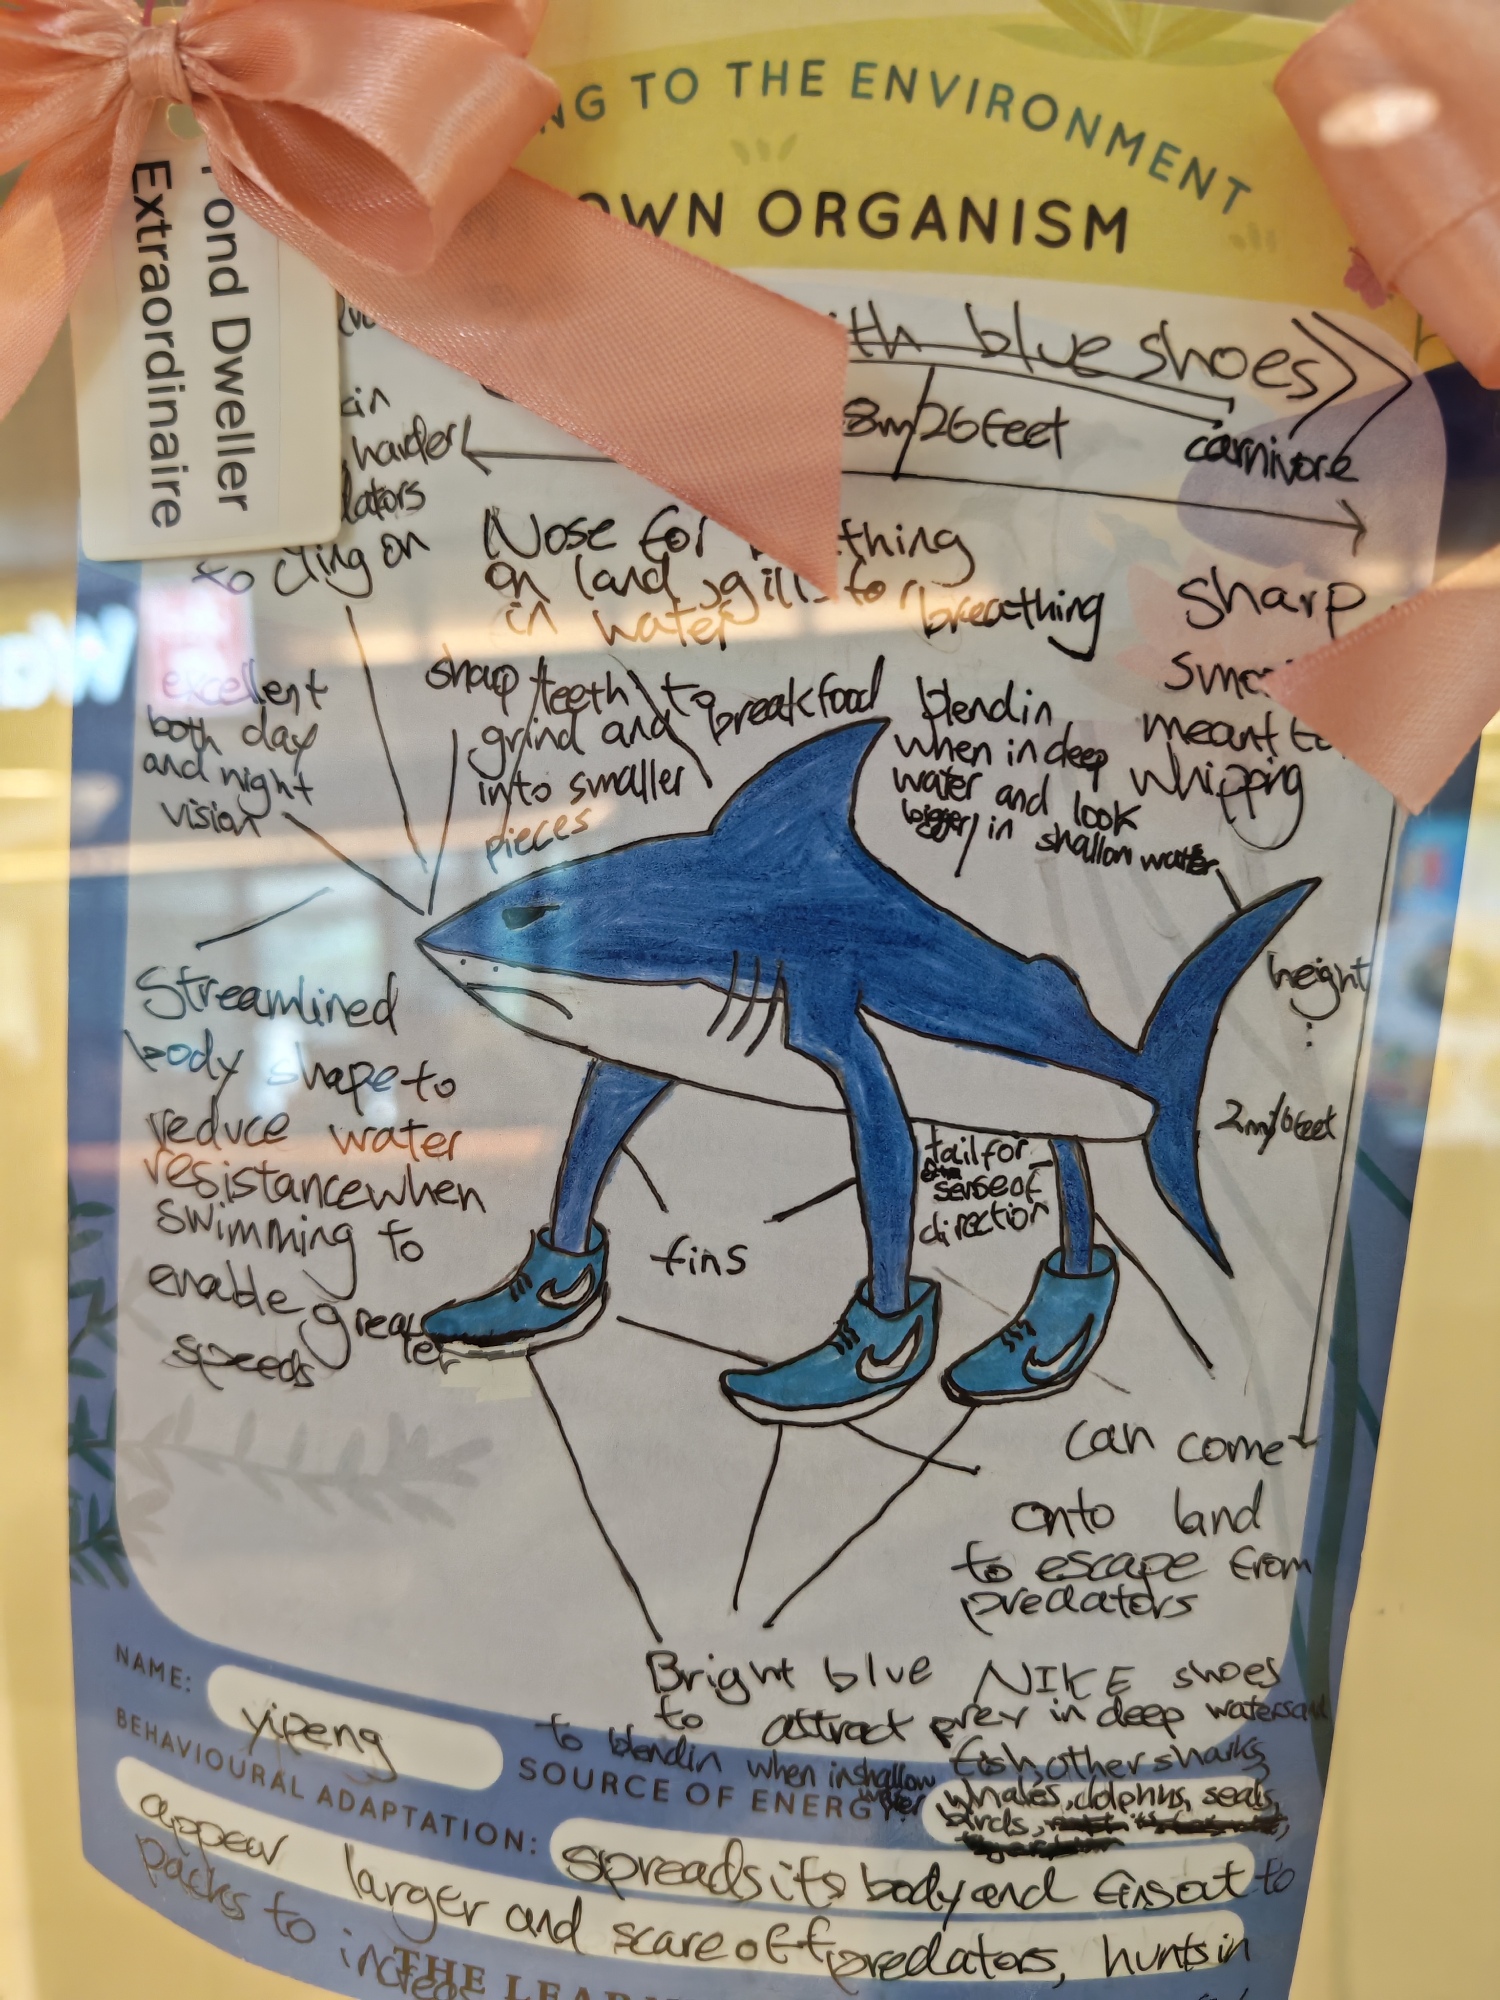 NG TO THE ENVIRONMENT
OWN ORGANISM
ond Dweller
Extraordinaire
ith blue shoes
8m/26feet
carnivore
harder
lators
to cling on
Nose for thing
on land, gills for breathing
in water
sharp
meant to
whipping
excellent
both day
and night
vision
sharp teeth to break food
grind and
into smaller
pieces
blend in
when in deep
water and look
bigger in shallow water
Streamlined
body shape to
reduce water
resistance when
swimming to
enable greater
speeds
height
:
2m/6feet
tail for
sense of
direction
fins
can come
onto land
to escape from
predators
Bright blue NIKE shoes
to attract prey in deep waters and
to blend in when in shallow water
NAME: yipeng
SOURCE OF ENERGY: fish, other sharks,
whales, dolphins, seals,
birds,
BEHAVIOURAL ADAPTATION: spreads its body and fins out to
appear larger and scare off predators, hunts in
packs to increas
THE LEAR